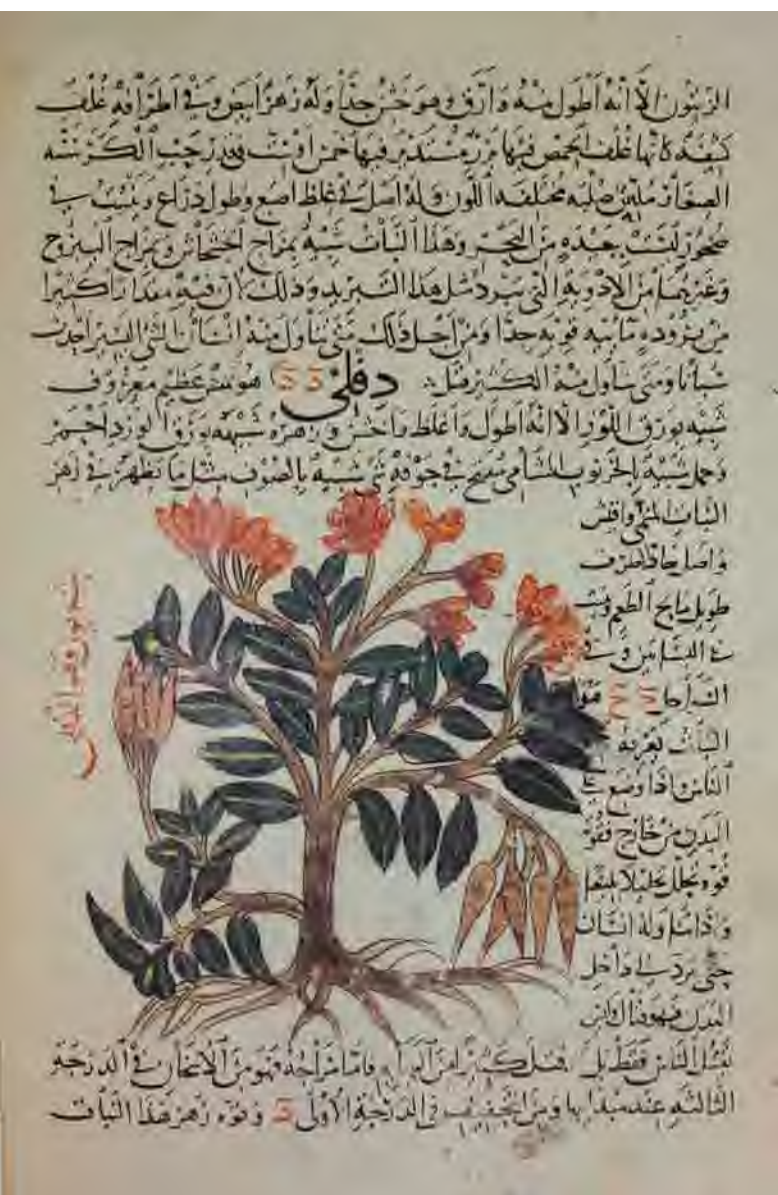 الزيتون الا انه اطول منه وارق وهو خشن جدا وله زهر ابيض وفي اطرافه غلف
كانها غلف الحمص فيها بزر مستدير فيها خمس او ست في قدر حب الكرسنه
الصغار ملس صلبه مختلفه اللون وله اصل في غلظ اصبع وطول ذراع وينبت في
صخور ليست ببعيده من البحر وهذا النبات شبيه بمزاج الخشخاش وبمزاج اليبروح
وغيرهما من الادويه التي تبرد مثل هذا التبريد وذلك لان فيه مقدارا كثيرا
من بروده مائيه قويه جدا ومن اجل ذلك متى تناول منه انسان الشي اليسير احدث
سباتا ومتى تناول منه الكثير قتل دفلى هو تمنش عظيم معروف
شبيه بورق اللوز الا انه اطول واغلظ واخشن وزهره شبيهه بورق الورد احمر
وحمل شبيه بالخرنوب الشامي مفتح في جوفه شي شبيه بالصوف مثل ما يظهر في زهر
النبات المسمى
واصل حاد الطرف
طويل مالح الطعم وينبت
في البساتين وفي
السواحل
النبات يعرفه
الناس واذا وضع على
البدن من خارج فقوته
قوه تحلل تحليلا بليغا
واذا تناوله انسان
حتى يرد الى داخل
البدن فهو قتال وليس
يقتل الناس فقط بل يقتل كثيرا من البهائم فاما مزاجه فهو من الاسخان في الدرجه
الثالثه عند مبداها ومن التجفيف في الدرجه الاولى وقوه زهر هذا النبات